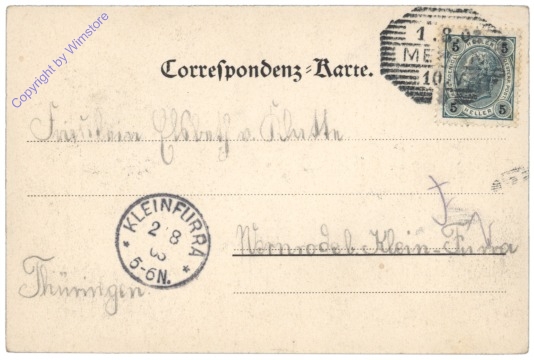 Copyright by Wimstore
1. 8. 0
5 5
ME
10
5 5
HELLER
Correspondenz-Karte.
Fräulein Elsbeth v. Klutte
KLEINFURRA
2 8
03
5-6N.
Wernrode b. Klein-Furra
Thüringen.